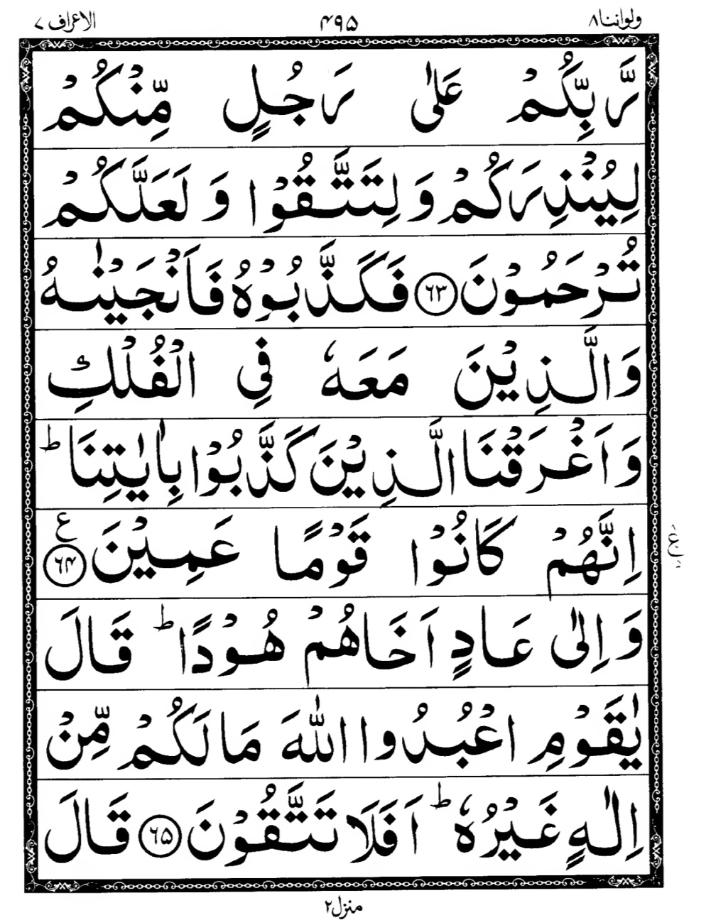 ولواننا ٨ ۴۹۵ الاعراف ٧
رَّبِّكُمْ عَلٰى رَجُلٍ مِّنْكُمْ
لِيُنْذِرَكُمْ وَلِتَتَّقُوْا وَ لَعَلَّكُمْ
تُرْحَمُوْنَ ﴿۶۳﴾ فَكَذَّبُوْهُ فَاَنْجَيْنٰهُ
وَالَّذِيْنَ مَعَهٗ فِى الْفُلْكِ
وَاَغْرَقْنَا الَّذِيْنَ كَذَّبُوْا بِاٰيٰتِنَا ؕ
اِنَّهُمْ كَانُوْا قَوْمًا عَمِيْنَ ﴿۶۴﴾ ع
وَاِلٰى عَادٍ اَخَاهُمْ هُوْدًا ؕ قَالَ
يٰقَوْمِ اعْبُدُوا اللّٰهَ مَا لَكُمْ مِّنْ
اِلٰهٍ غَيْرُهٗ ؕ اَفَلَا تَتَّقُوْنَ ﴿۶۵﴾ قَالَ
منزل ٢